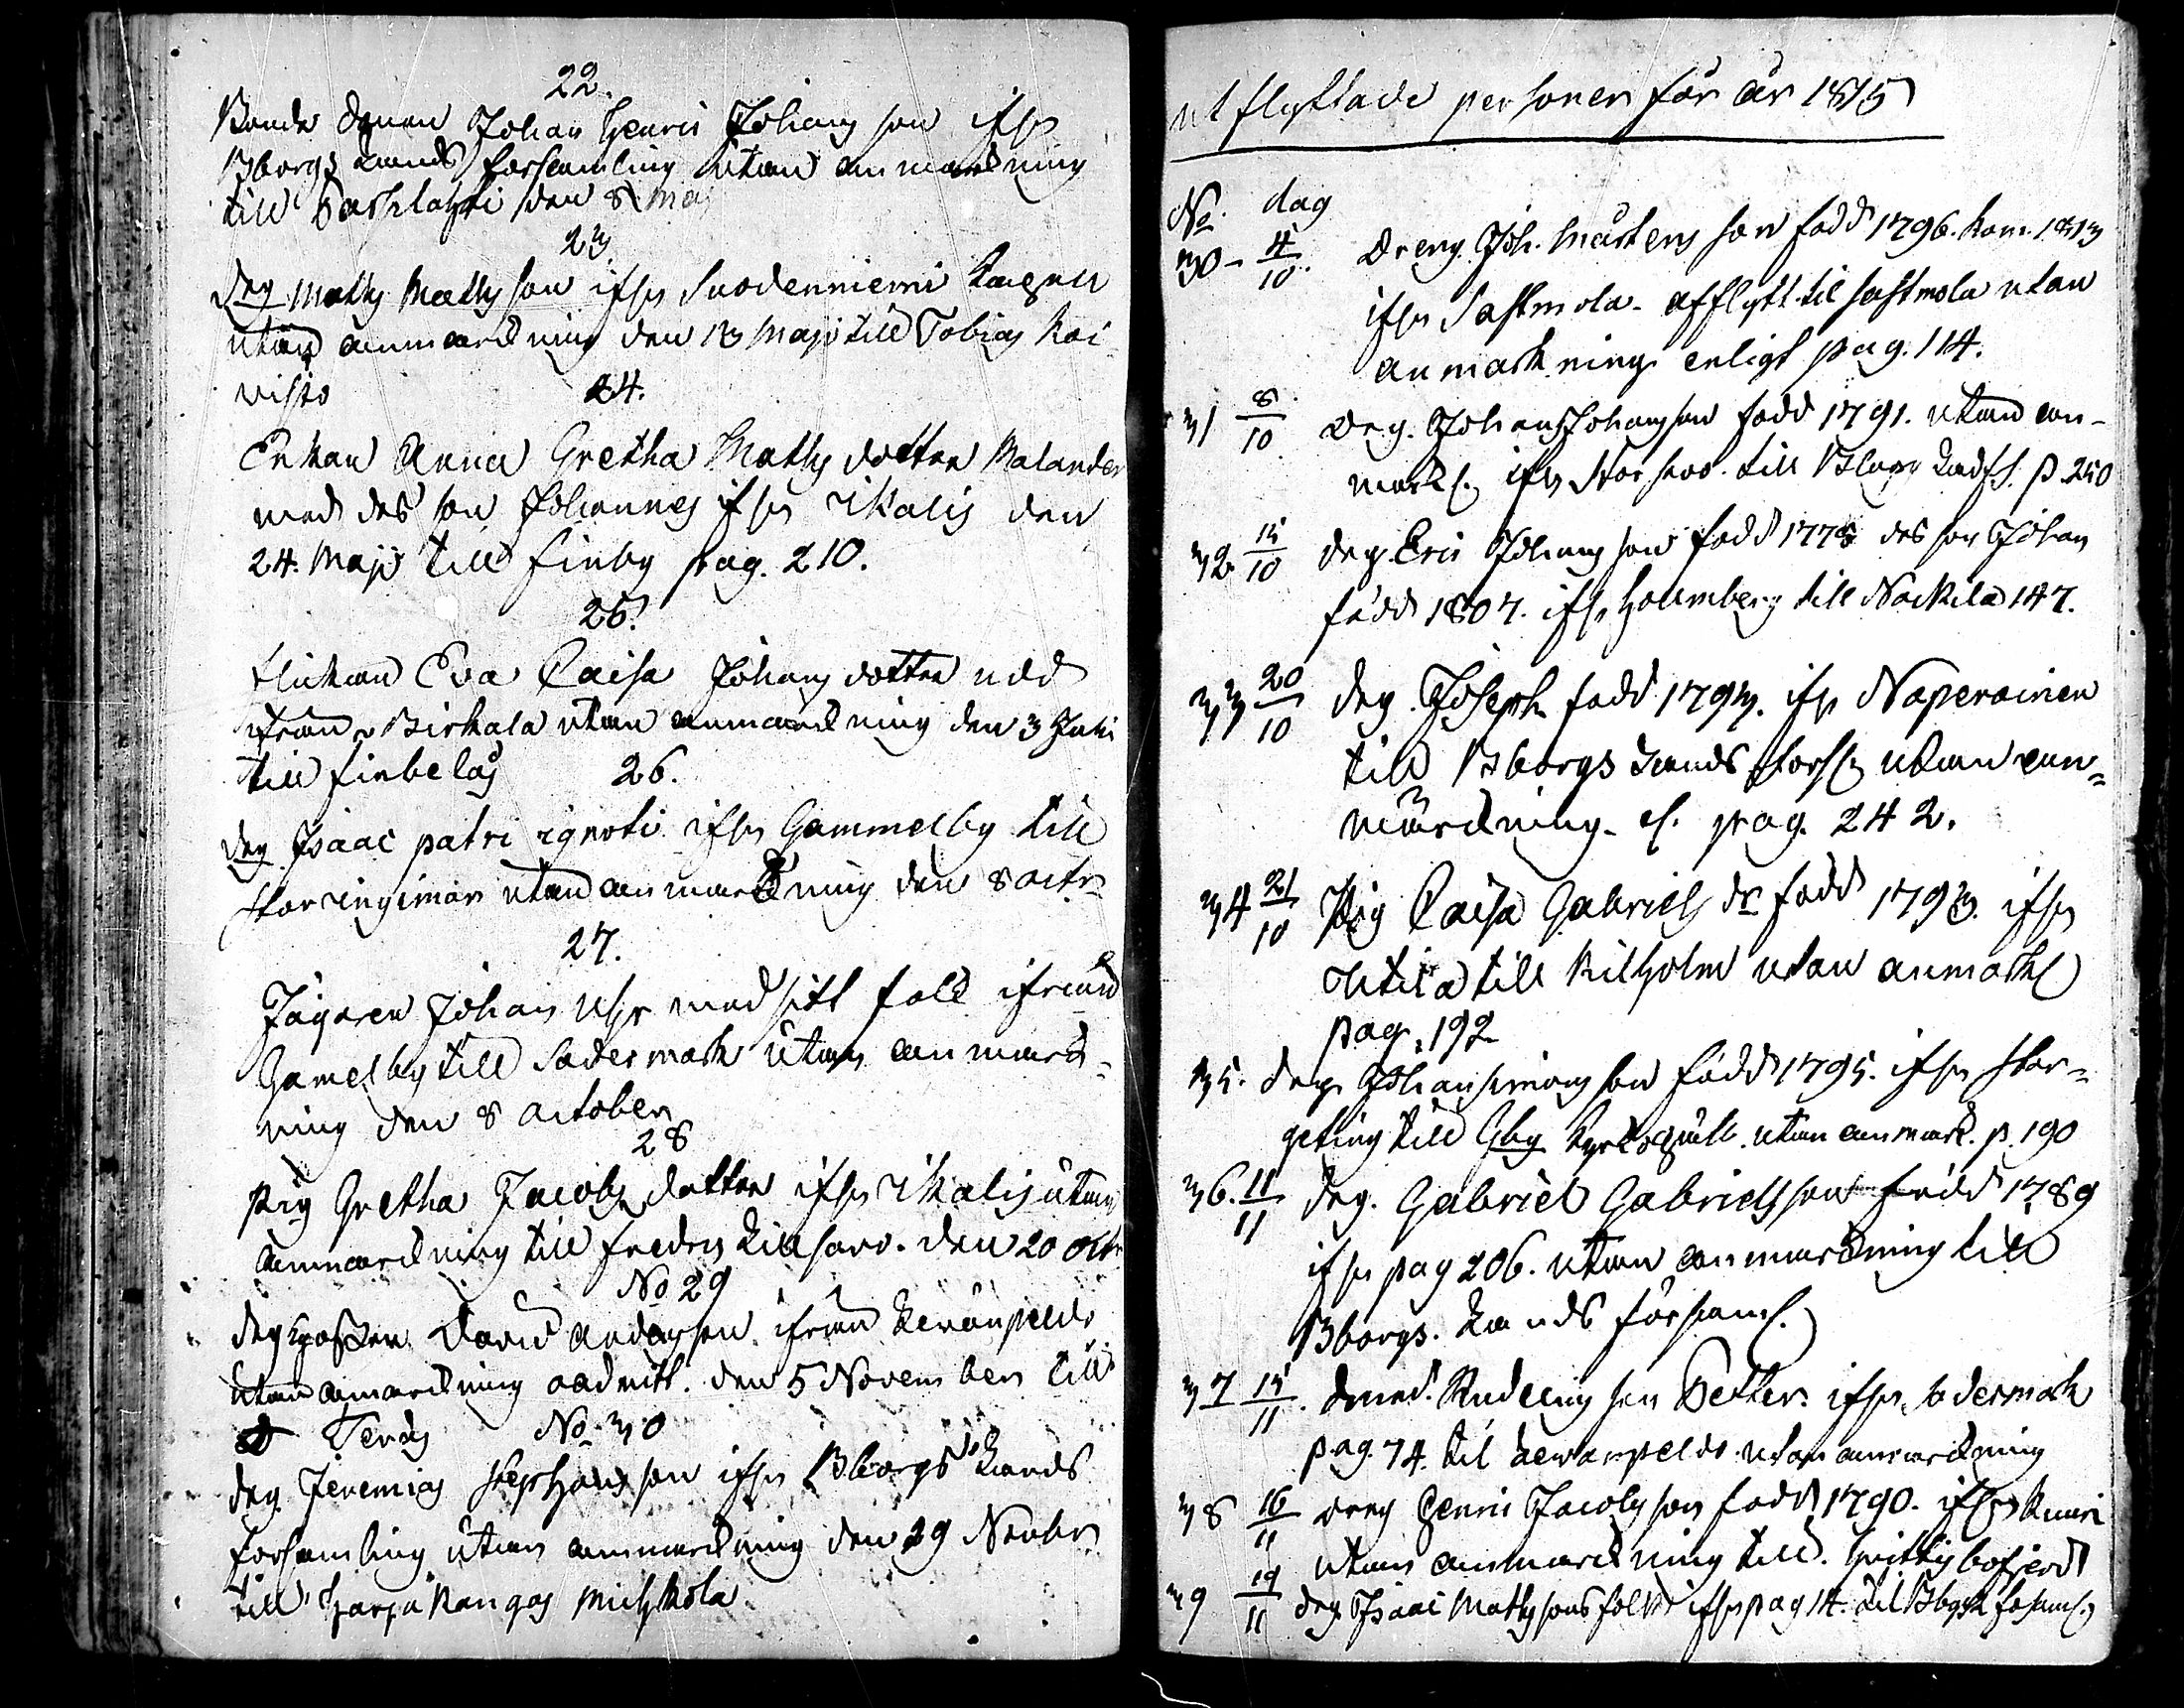 22.
Bonde Sonen Johan Henric Johans son ifrn
Bborgs Lands forsamling utan anmarckning
till Pashlahti den 8 Maj
23.
Drg Matts Matts son ifrn Suodenniemi Kapell
utan anmarckning den 13 Maji till Tobias Koi
visto
24.
Enkan Anna Gretha Matts dotter Malander
med des son Johannes ifrn Ikalis den
24. Maji till Finby pag. 210.
25.
flickan Eva Caisa Johans dotter
ifrån Birkala utan anmarckning den 3 Juli
till finbelås
26.
Drg Isaac patri ignoti ifrn Gammelby till
utan anmarckning den 8 octr
27.
Jägaren Johan med sitt folck ifrån
Gamelby till Sadermark utan anmarck-
ning den 8 october
28
Pig Gretha Jacobs dotter ifrn Ikalis utan
anmarckning till Fredrs Killsaro. den 20 octr
No 29
David Anders son ifrån Lewänpeldo
utan anmarckning admitt. den 5 November till
Teräs
No 30
drg Jeremias Stephans son ifrn Bborgs Lands
forsamling utan anmarckning den 29 Novbr
till Harjakangas Mickola

utflyttade personer för år 1815
No. dag
30 - 4/10. Dreng Joh. Mårtens son fodd 1796. kom. 1813
ifrn Sastmola - afflytt. til Sastmola utan
anmarkning enligt pag. 114.
31 8/10 Drg. Johan Johans son fodd 1791. utan an-
marck. ifrn Storsvo. till Lands. p. 250
32 15/10 drg. Eric Johans son fodd 1778 des son Johan
född 1807. ifrn Holmberg till Nackila 147.
33 20/10 drg. Joseph fodd 1793. ifrn Noperoinen
till Bborgs Lands fors. utan an-
märckning - pag. 242.
34 21/10 Pig Caisa Gabriels dr fodd 1793. ifrn
till Kilholm utan anmark
pag. 192
35. drg Johan Simons son född 1795. ifrn stor-
till Gby utan anmarck. p. 190
36. 11/11 drg. Gabriel Gabriels son född 1789
ifrn pag 206. utan anmarckning till
Bborgs. Lands församl.
37 15/11. Rudeens son Petter. ifrn Sadermark
pag. 74. til Lewanpeldo utan anmarckning
38 16/11 dreng Henric Jacobs son fodd 1790. ifrn
utan anmarckning till. Hvittisbofjerd
39 19/11 drg Isaac Matts sons folck ifrn pag 14. til Bbgs L. forsaml.